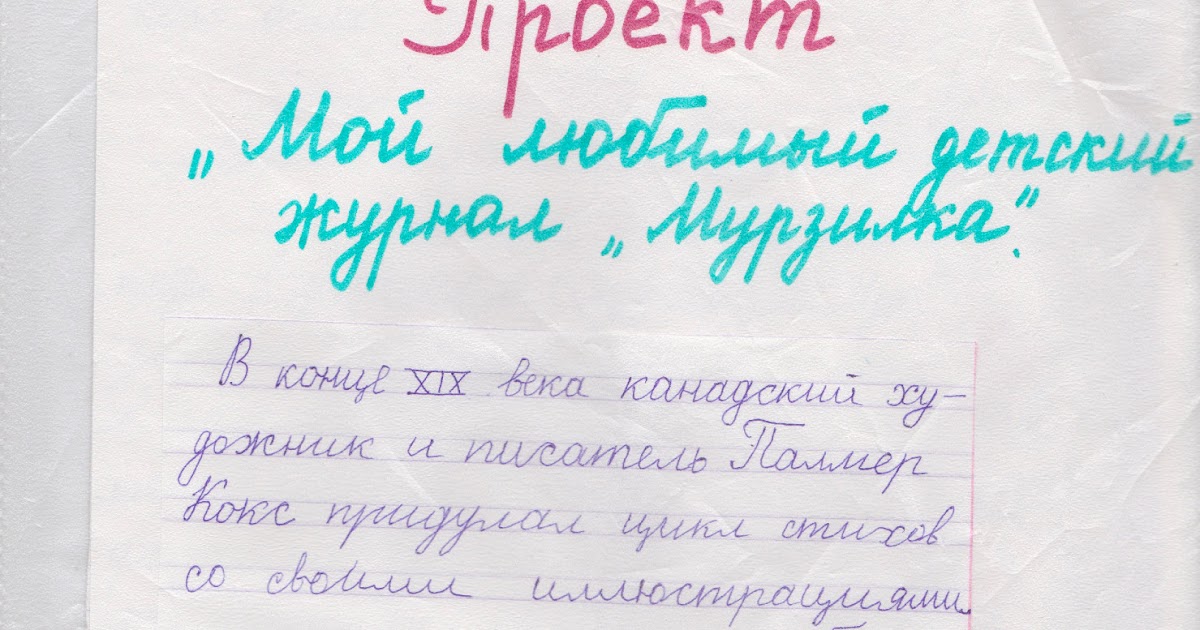 Проект
„Мой любимый детский
журнал „Мурзилка".
В конце XIX века канадский ху-
дожник и писатель Палмер
Кокс придумал цикл стихов
со своими иллюстрациями.